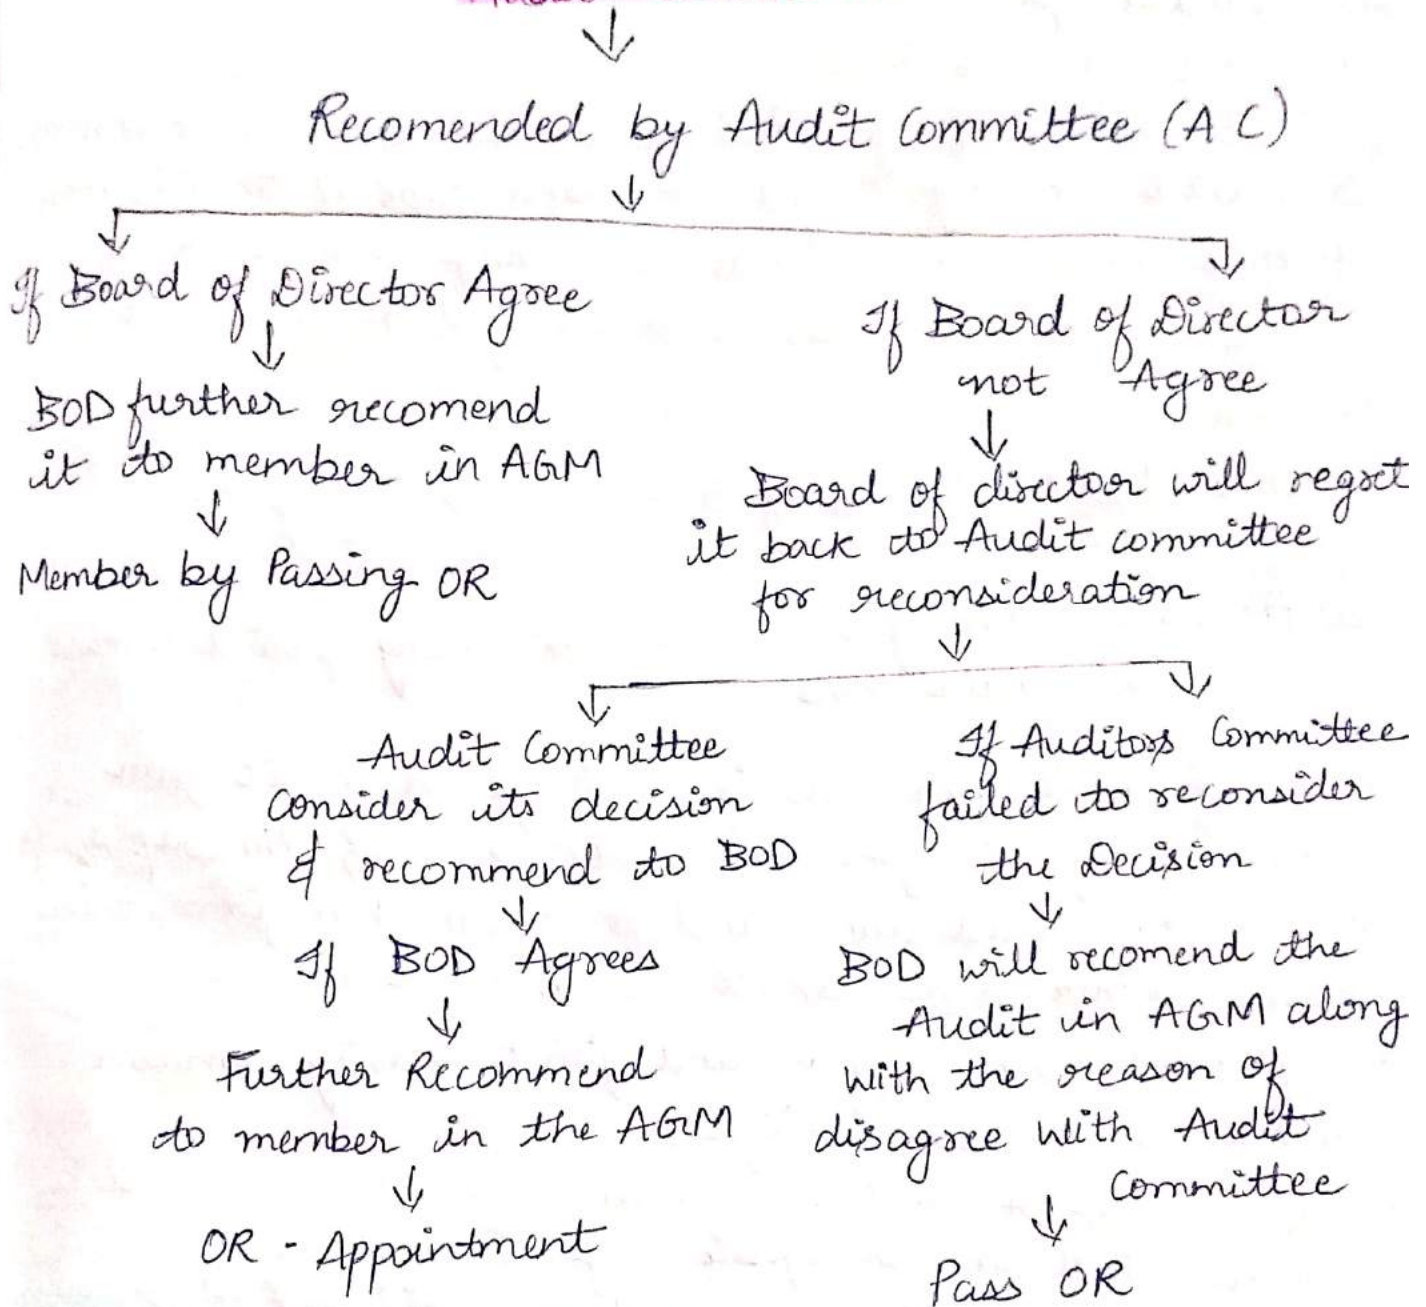 Recomended by Audit Committee (A C)
If Board of Director Agree
BOD further recomend
it to member in AGM
Member by Passing OR
If Board of Director
not Agree
Board of director will regret
it back to Audit committee
for reconsideration
Audit Committee
Consider its decision
& recommend to BOD
If BOD Agrees
Further Recommend
to member in the AGM
OR - Appointment
If Auditors Committee
failed to reconsider
the Decision
BOD will recomend the
Audit in AGM along
with the reason of
disagree with Audit
Committee
Pass OR